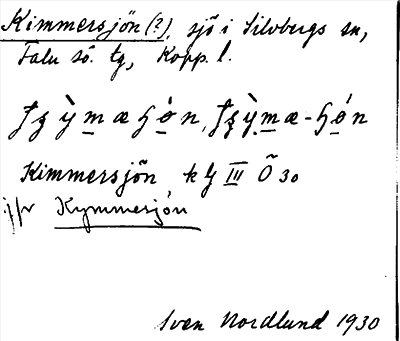 Kimmersjön (?), sjö i Silvbergs sn,
Falu sö. tg, Kopp. l.
Kimmersjön k III Ö 30
jfr Kymmersjön
Sven Nordlund 1930